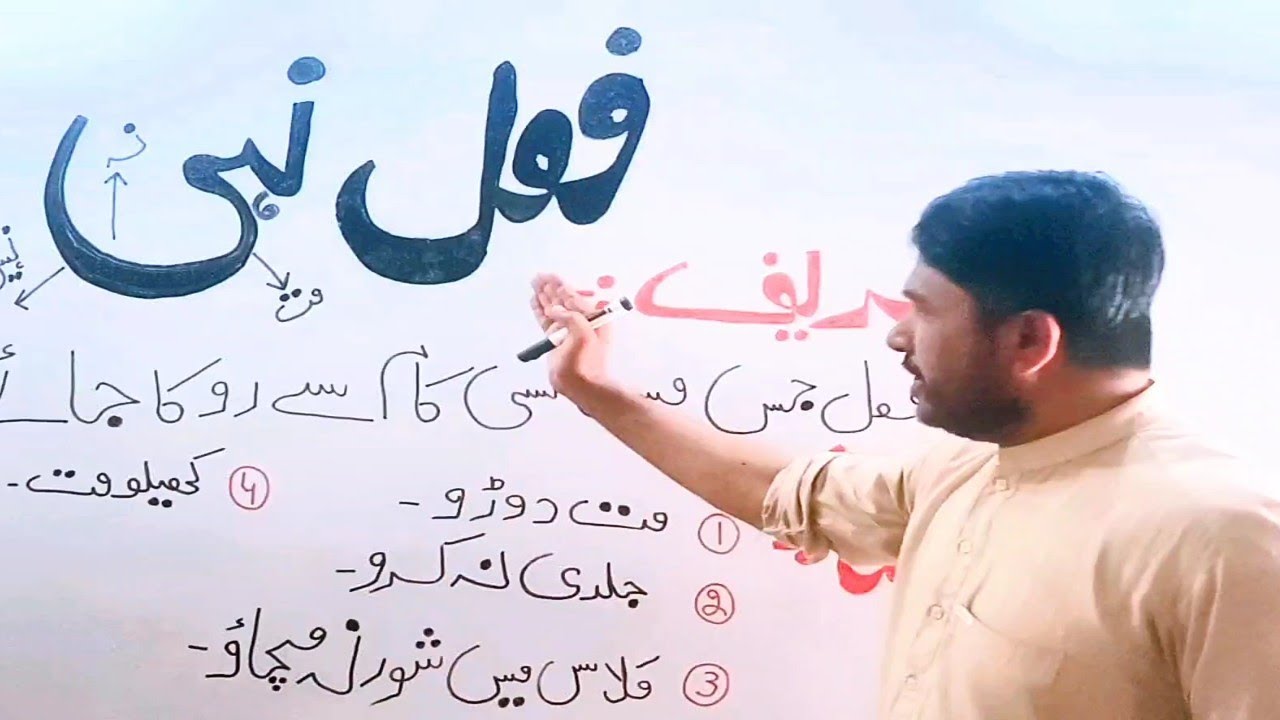 فعل نہی
نہ
مت
تعریف:
فعل جس کسی کام سے روکا جائے
① مت دوڑو -
② جلدی نہ کرو -
③ کلاس میں شور نہ مچاؤ -
④ کھیلو مت -